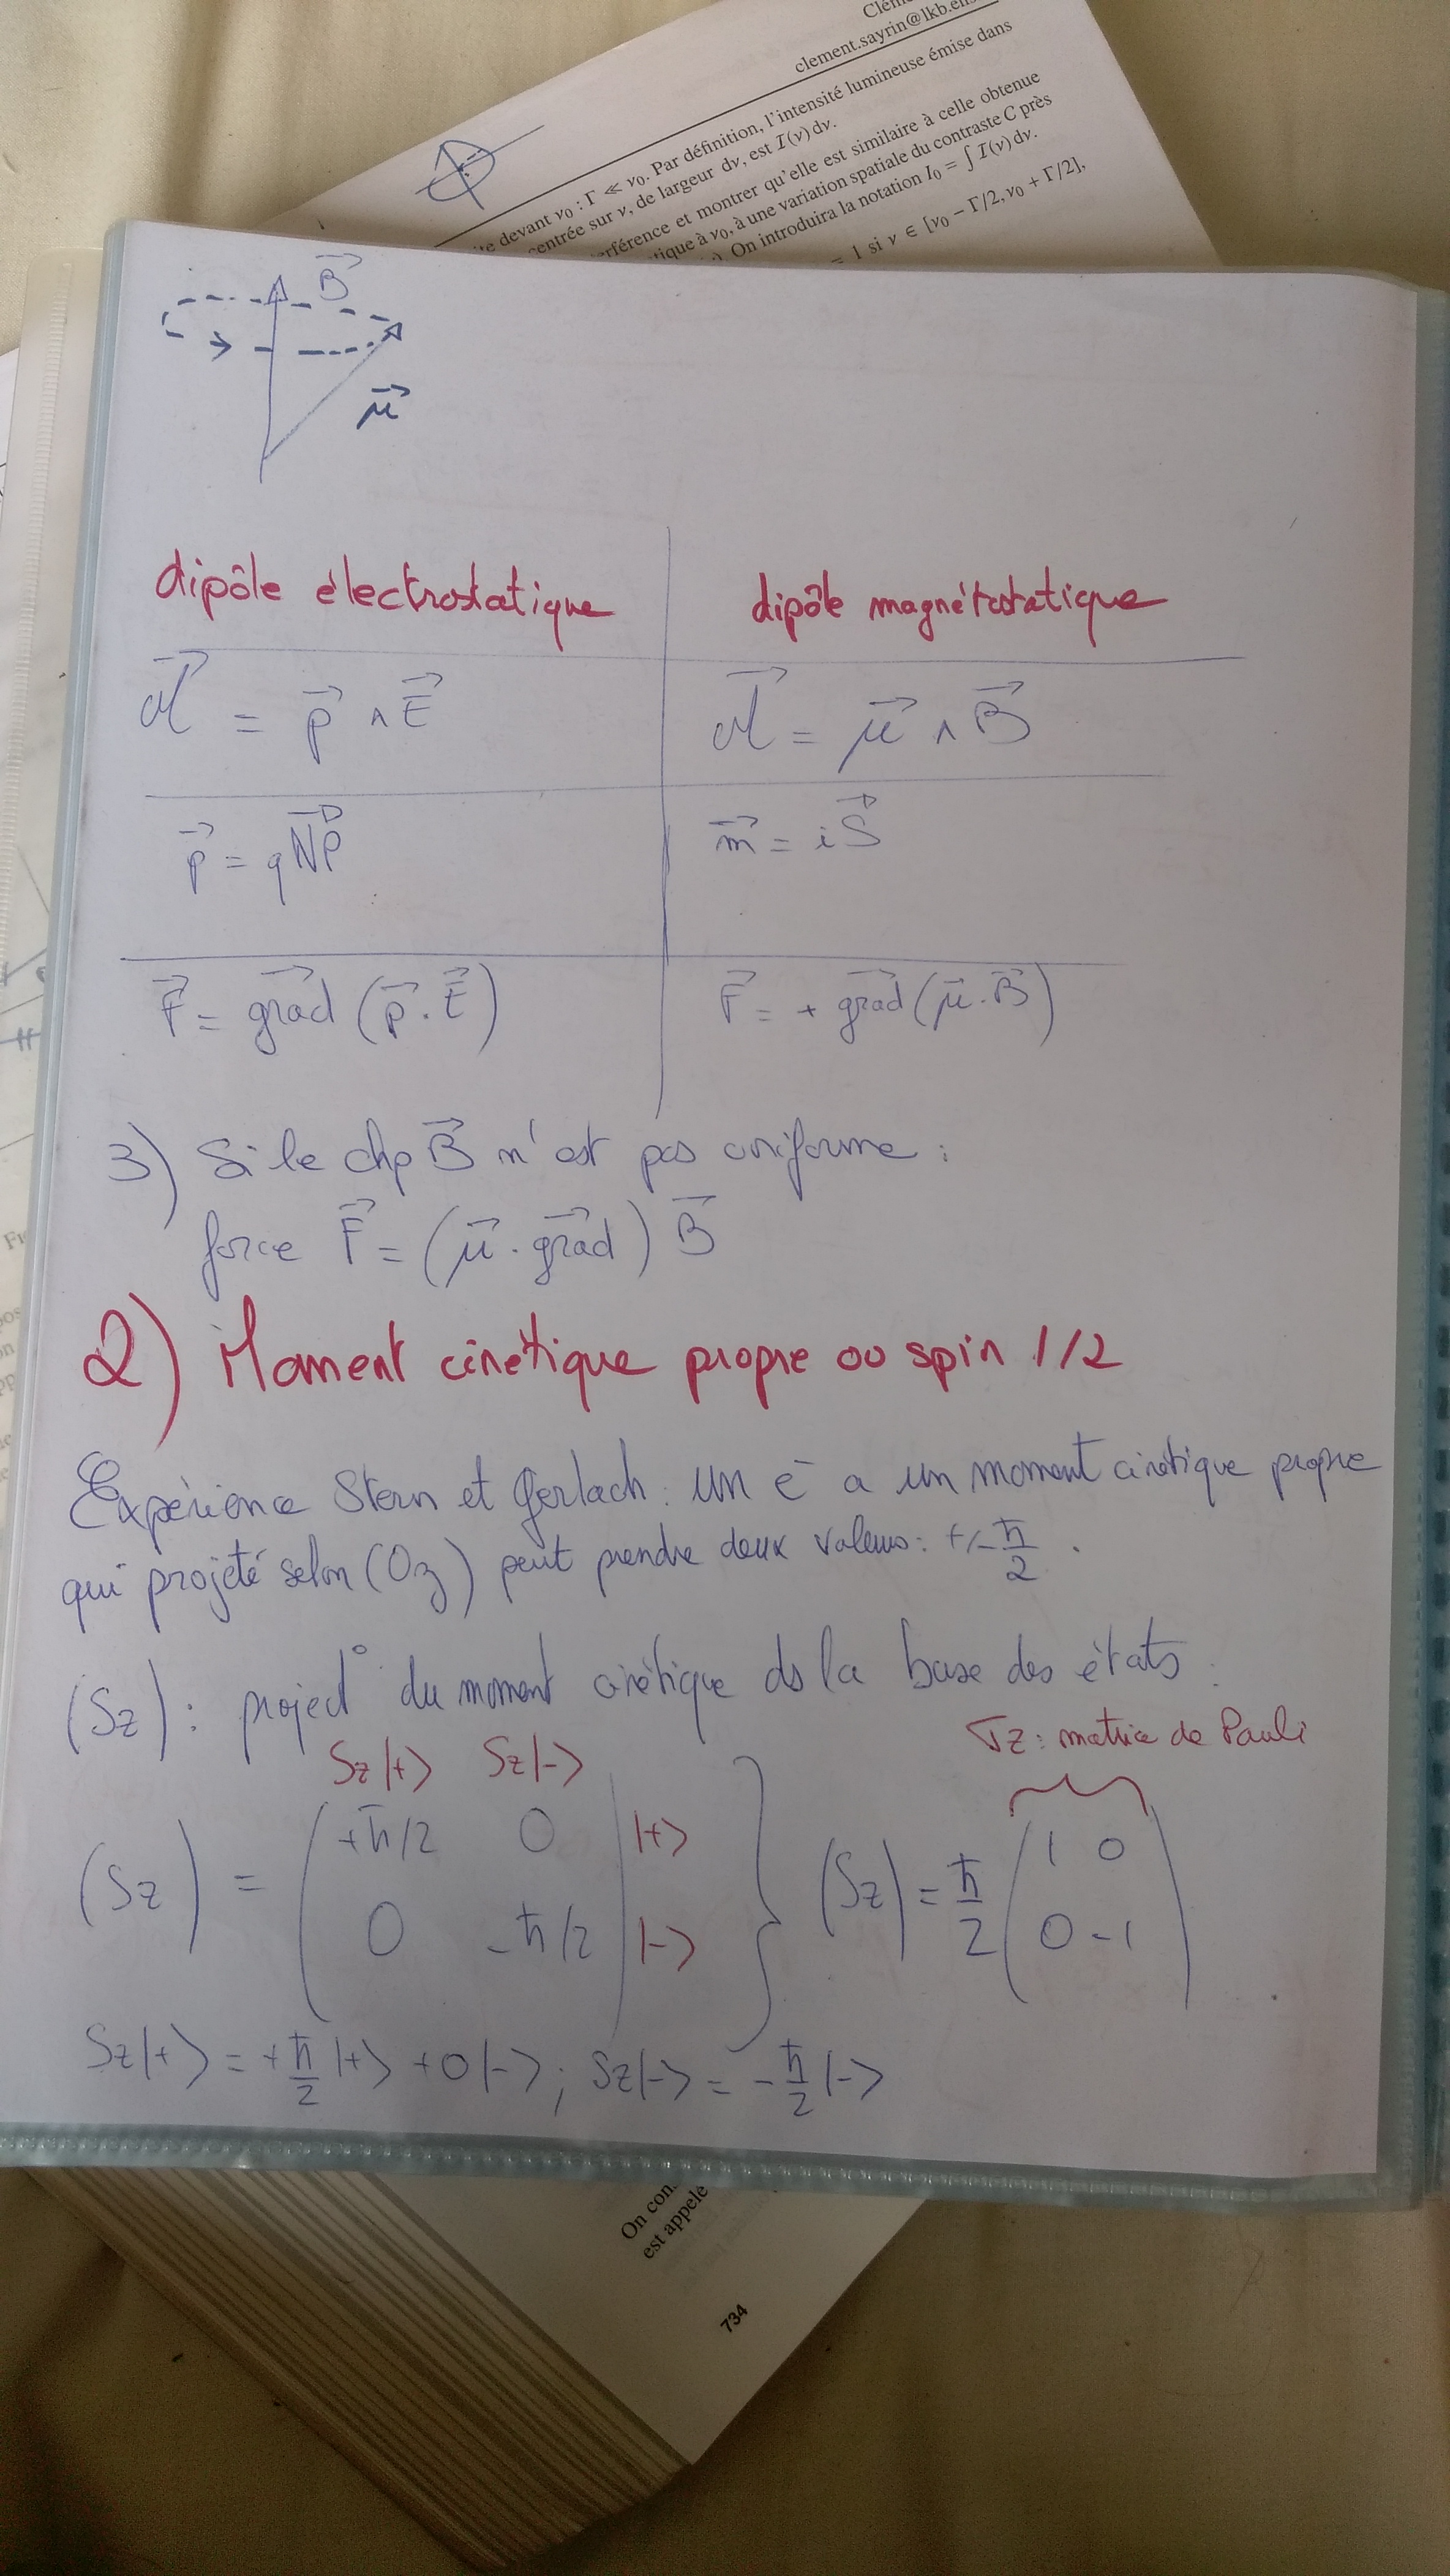 Clém
clement.sayrin@lkb.ens
devant ν₀ : Γ ≪ ν₀. Par définition, l'intensité lumineuse émise dans
centrée sur ν, de largeur dν, est I(ν) dν.
rférence et montrer qu'elle est similaire à celle obtenue
tique à ν₀, à une variation spatiale du contraste C près
On introduira la notation I₀ = ∫ I(ν) dν.
= 1 si ν ∈ [ν₀ − Γ/2, ν₀ + Γ/2],
B⃗
μ⃗
dipôle électrostatique
dipôle magnétostatique
M⃗ = p⃗ ∧ E⃗
M⃗ = μ⃗ ∧ B⃗
p⃗ = q NP⃗
m⃗ = i S⃗
F⃗ = grad⃗ (p⃗ . E⃗)
F⃗ = + grad⃗ (μ⃗ . B⃗)
3) Si le chp B⃗ n'est pas uniforme :
force F⃗ = (μ⃗ . grad⃗) B⃗
2) Moment cinétique propre ou spin 1/2
Expérience Stern et Gerlach : un e⁻ a un moment cinétique propre
qui projeté selon (Oz) peut prendre deux valeurs : +/- ħ/2 .
(Sz) : project° du moment cinétique ds la base des états .
σz : matrice de Pauli
Sz|+> Sz|->
(Sz) = ( +ħ/2 0 | |+> } (Sz) = ħ/2 ( 1 0
0 -ħ/2 | |-> 0 -1 )
Sz|+> = +ħ/2 |+> + 0|-> ; Sz|-> = - ħ/2 |->
On con
est appelé
734